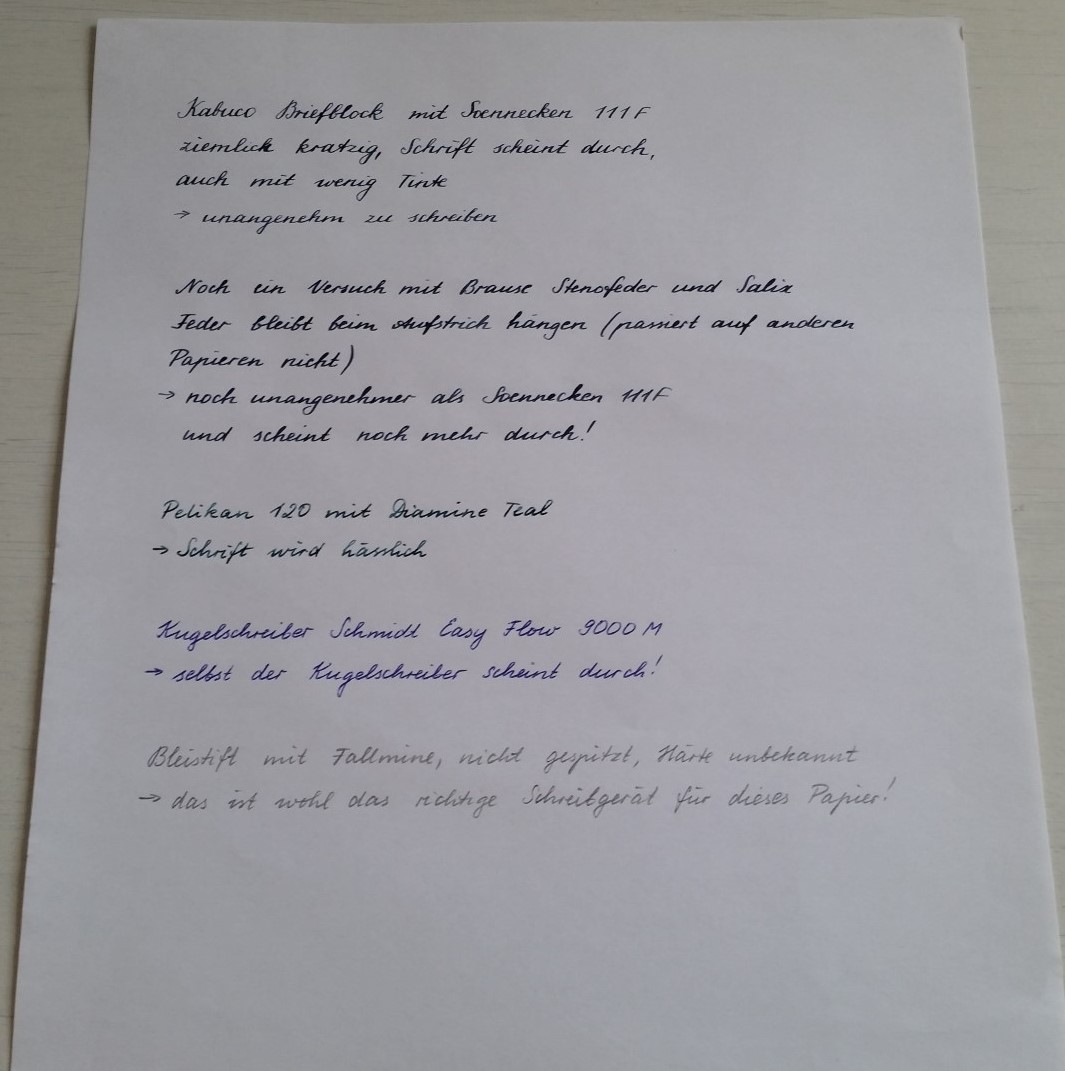 Kabuco Briefblock mit Soennecken 111 F
ziemlich kratzig, Schrift scheint durch,
auch mit wenig Tinte
→ unangenehm zu schreiben
Noch ein Versuch mit Brause Stenofeder und Salix
Feder bleibt beim Aufstrich hängen (passiert auf anderen
Papieren nicht)
→ noch unangenehmer als Soennecken 111F
und scheint noch mehr durch!
Pelikan 120 mit Diamine Teal
→ Schrift wird hässlich
Kugelschreiber Schmidt Easy Flow 9000 M
→ selbst der Kugelschreiber scheint durch!
Bleistift mit Fallmine, nicht gespitzt, Härte unbekannt
→ das ist wohl das richtige Schreibgerät für dieses Papier!